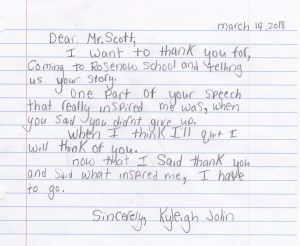 march 19, 2018
Dear. Mr. Scott,
I want to thank you for,
Coming to Rosenow School and telling
us your story.
One part of your speech
that really inspired me was, when
you said you didn't give up.
When I think I'll quit I
will think of you.
now that I said thank you
and said what inspired me, I have
to go.
Sincerely, Kyleigh Jolin